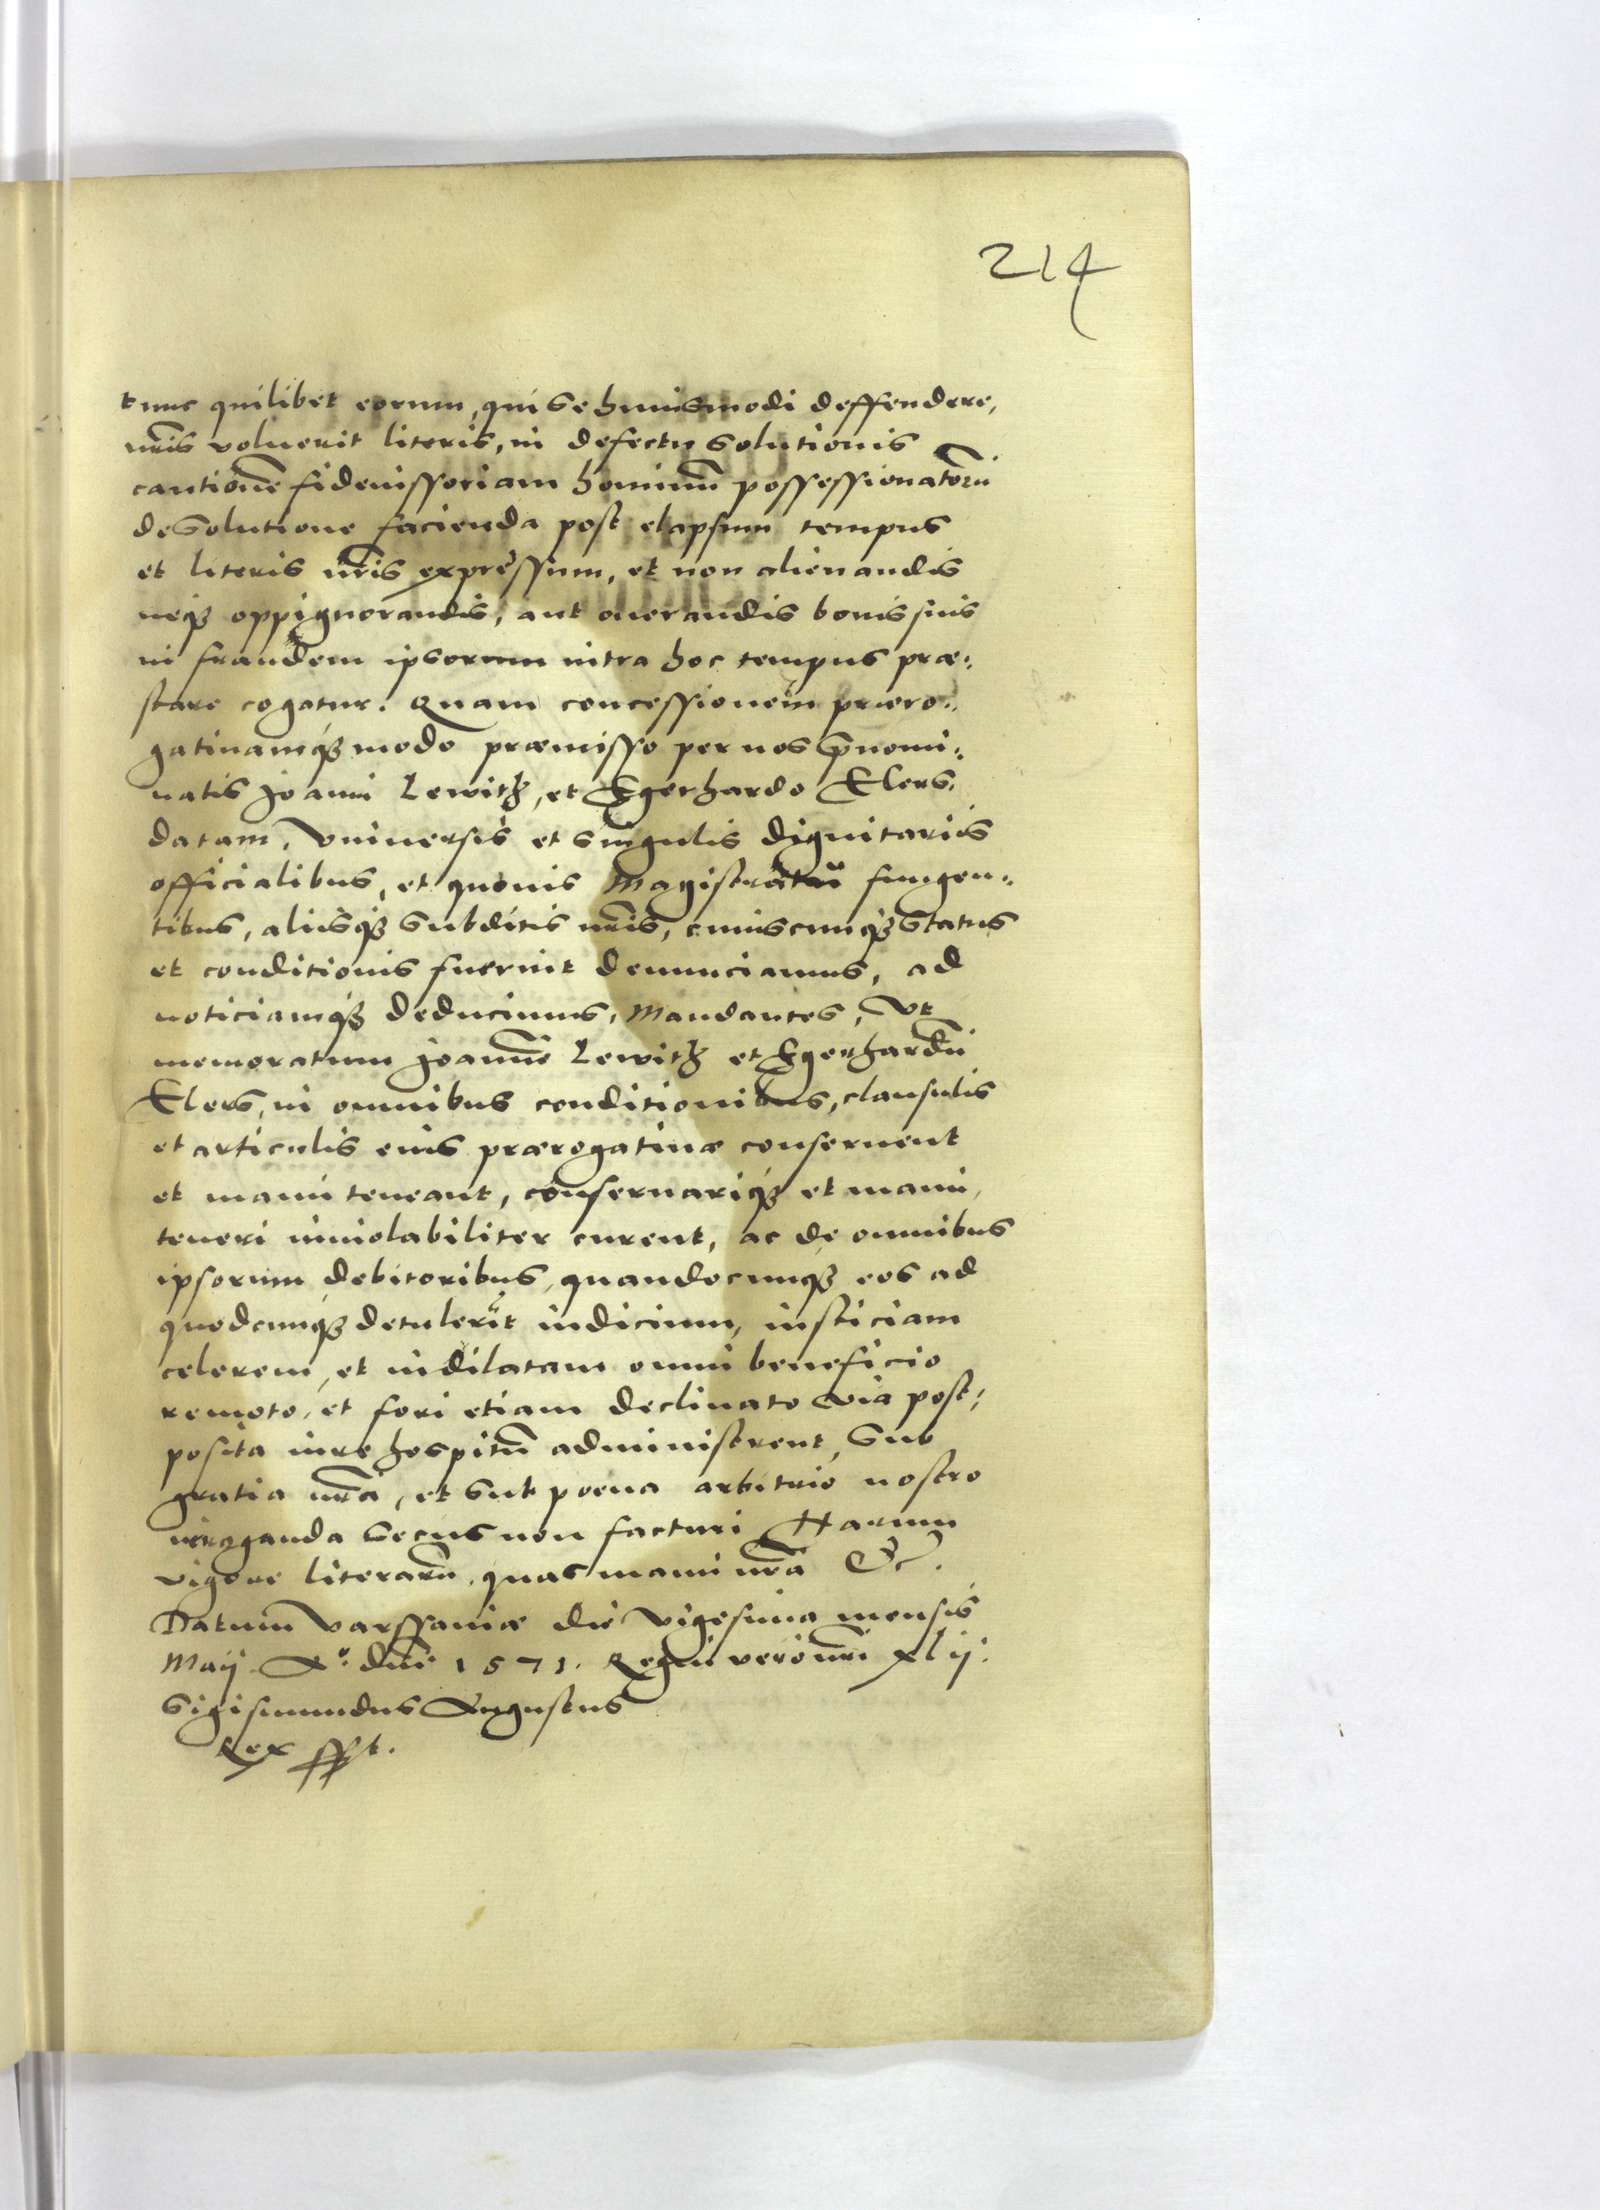 214
tunc quilibet eorum, qui se huiusmodi deffendere,
nr̃is voluerit literis, in defectu solutionis
cautionẽ fideiussoriam hominũ possessionatorũ
de solutione facienda post elapsum tempus
et literis nr̃is expressum, et non alienandis
neq3 oppignorandis, aut onerandis bonis suis
in fraudem ipsorum intra hoc tempus præ:
stare cogatur. Quam concessionem præro:
gatiuamq3 modo præmisso per nos p̃nomi:
natis Joanni Lewith, et Egerhardo Elers.
datam, Vniuersis et singulis dignitariis
officialibus, et quouis Magistratũ fungen:
tibus, aliisq3 subditis nr̃is, cuiuscunq3 status
et conditionis fuerint denunciamus, ad
noticiamq3 deducimus, Mandantes, Vt
memoratum Joannẽ Lewith et Egerhardũ
Elers, in omnibus conditionibus, clausulis
et articulis eius prærogatiuæ conseruent
et manu teneant, conseruariq3 et manu,
teneri inuiolabiliter curent, ac de omnibus
ipsorum debitoribus, quandocunq3 eos ad
quodcunq3 detulerĩt iudicium, iusticiam
celerem, et indilatam omni beneficio
remoto, et fori etiam declinatoria post:
posita iure hospitũ administrent, sub
gratia nr̃a, et sub poena arbitrio nostro
irroganda secus non facturi Harum
vigore literarũ, quas manu nr̃a &c.
Datum Varssauiæ die vigesima mensis
Maij A.º dñi 1571. Regni vero nr̃i xlij.
Sigismundus Augustus
Rex sspt.